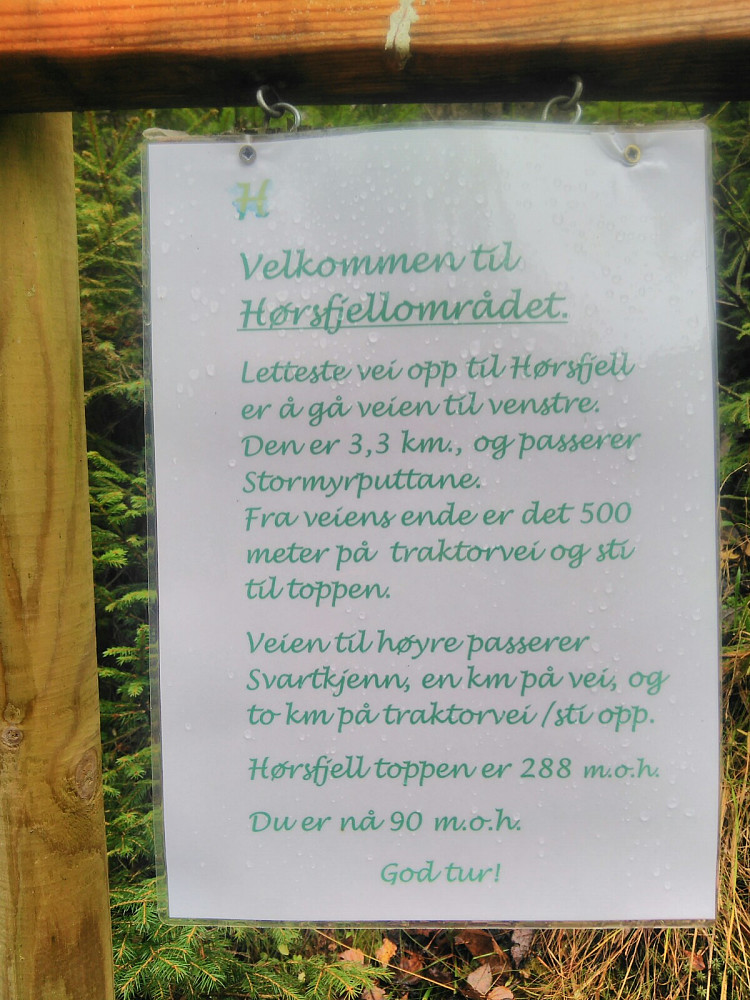 H
Velkommen til
Hørsfjellområdet.
Letteste vei opp til Hørsfjell
er å gå veien til venstre.
Den er 3,3 km., og passerer
Stormyrputtane.
Fra veiens ende er det 500
meter på traktorvei og sti
til toppen.
Veien til høyre passerer
Svartkjenn, en km på vei, og
to km på traktorvei /sti opp.
Hørsfjell toppen er 288 m.o.h.
Du er nå 90 m.o.h.
God tur!